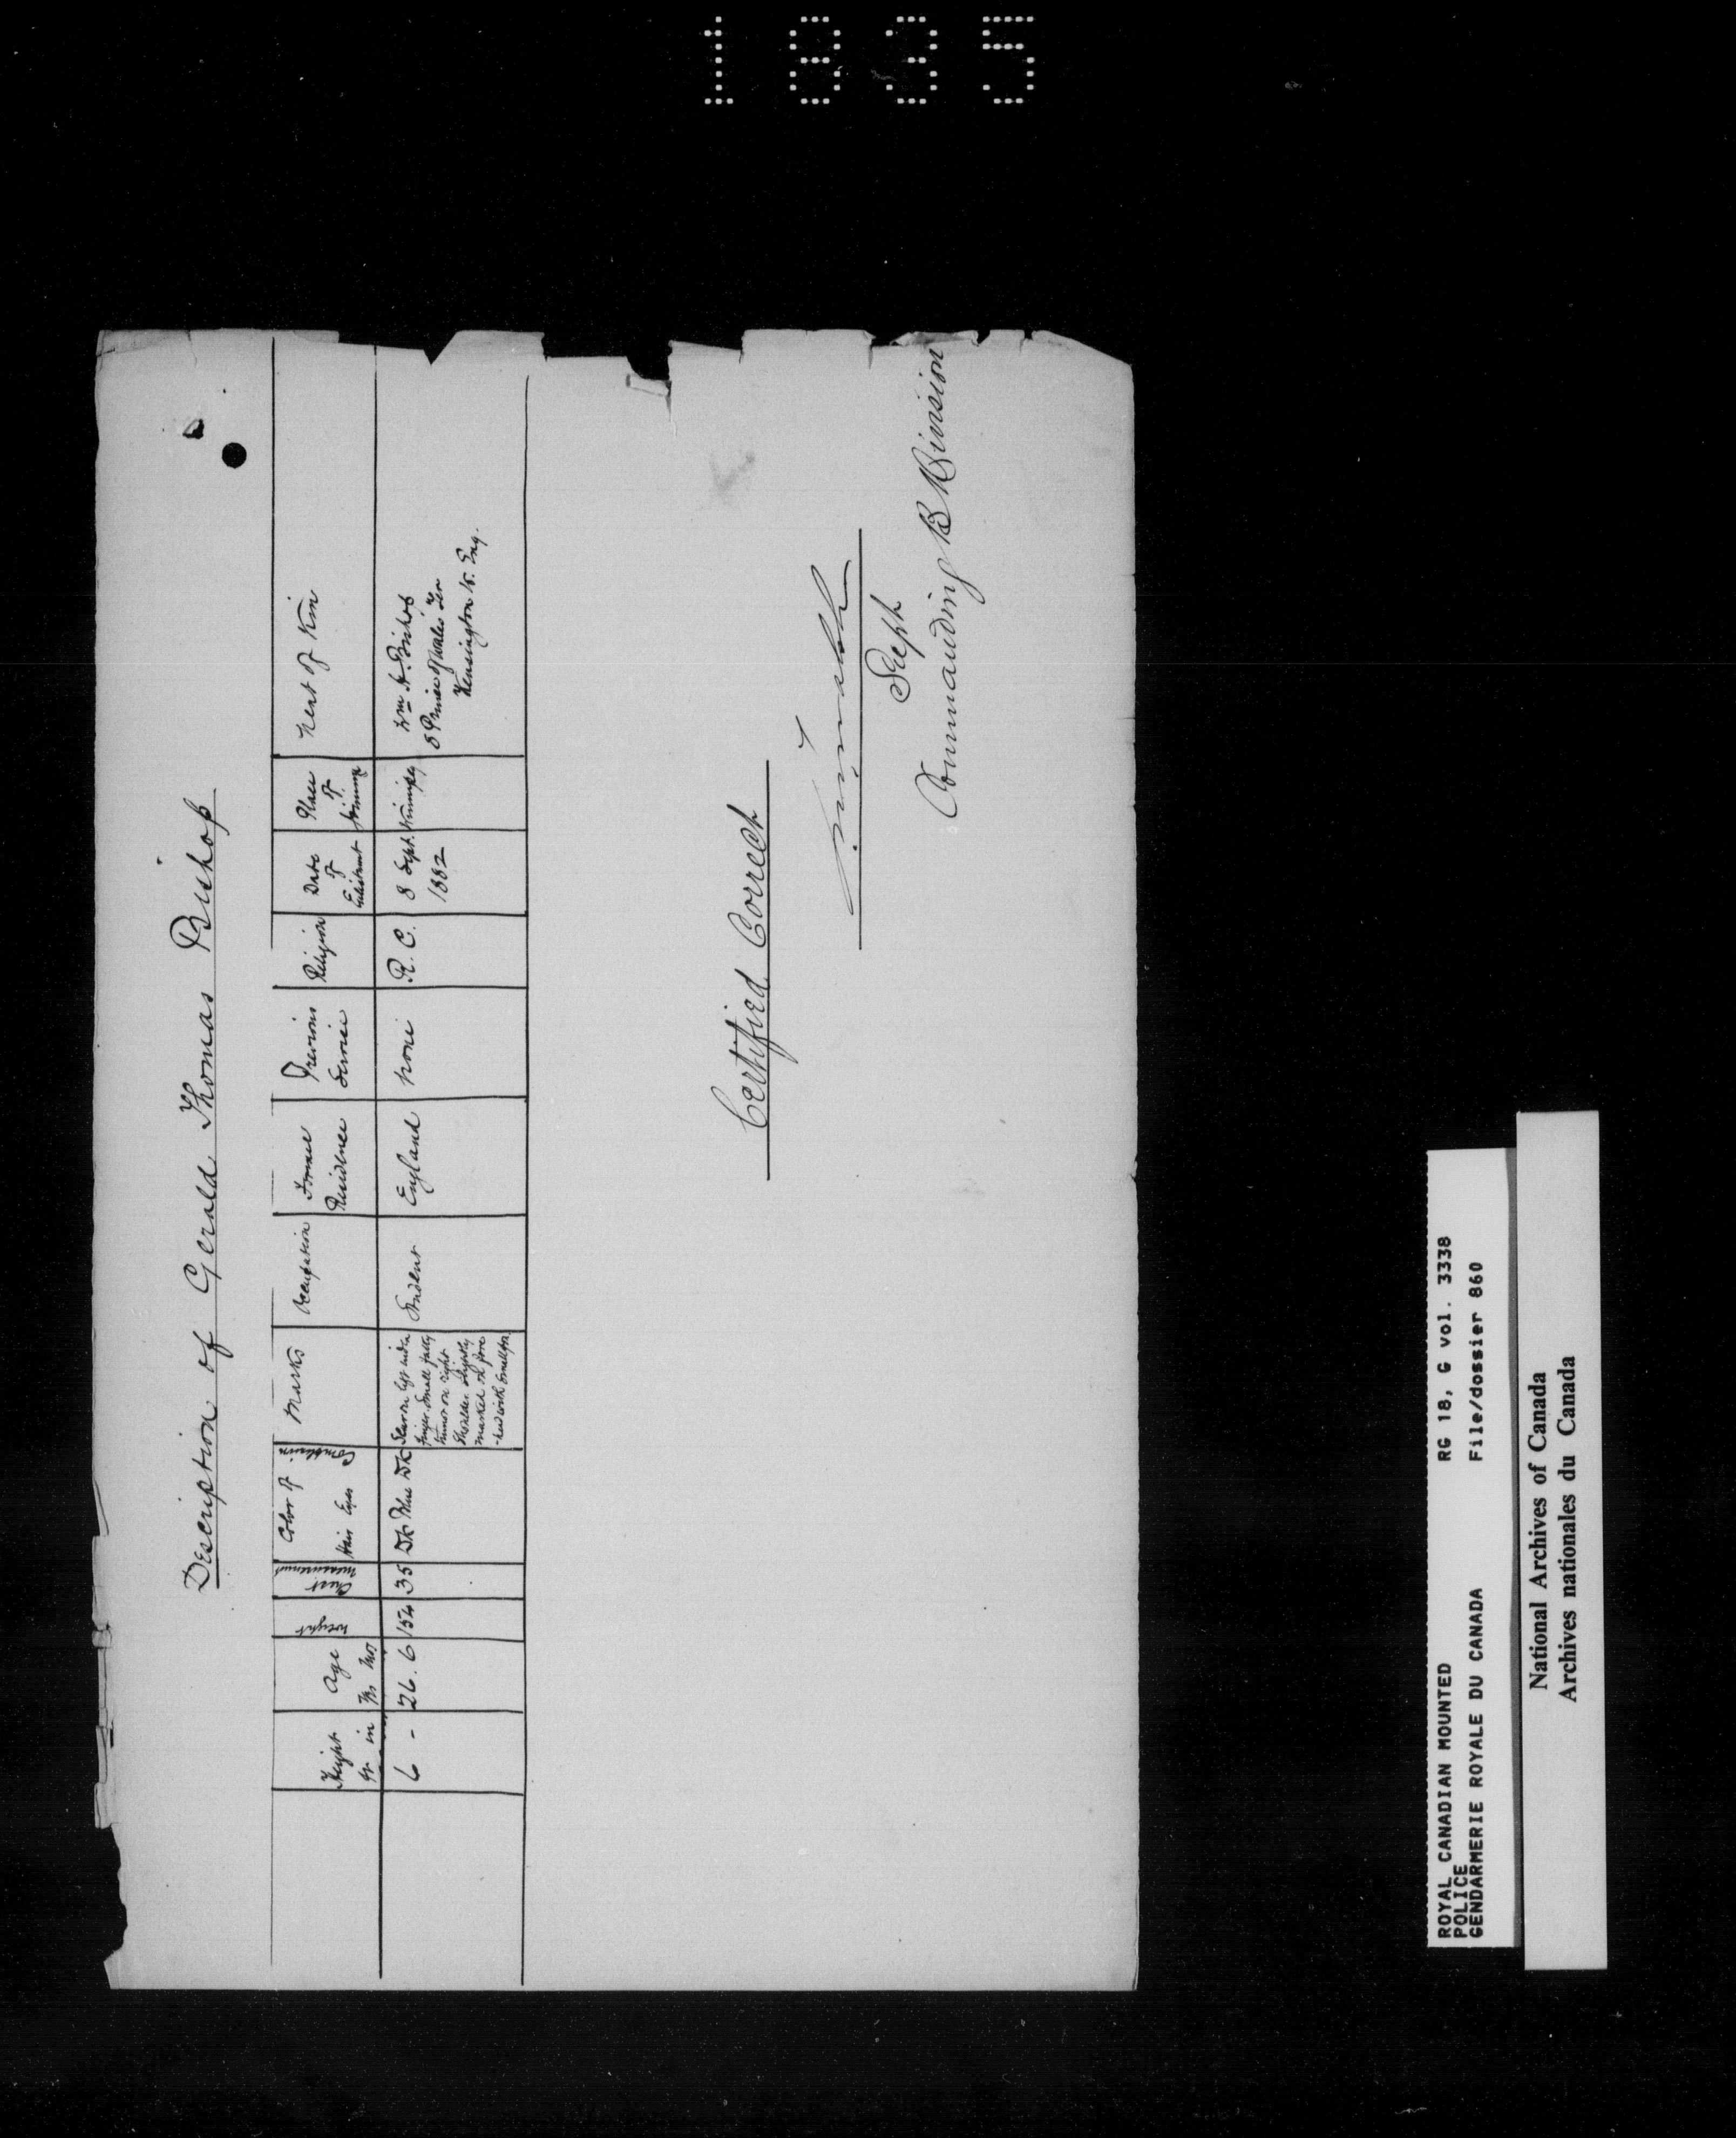 1835
Description of Gerald Thomas Bishop
Height
ft in
Age
Yrs Mos
Weight
Chest
measurement
Color of
Hair Eyes
Complexion
Marks
Occupation
Former
Residence
Previous
Service
Religion
Date
of
Enlistment
Place
of
Joining
Next of Kin
6 -
26. 6
154
35
Dk Blue Dk
Scar on left index
finger. Small fatty
tumor on right
shoulder slightly
marked on fore
-head with Smallpox.
Student
England
None
R. C.
8 Sept.
1882
Winnipeg
Wm H. Bishop
5 Prince of Wales Ter
Kensington W. Eng.
Certified Correct
Supt
Commanding B Division
ROYAL CANADIAN MOUNTED
POLICE
GENDARMERIE ROYALE DU CANADA
RG 18, G vol. 3338
File/dossier 860
National Archives of Canada
Archives nationales du Canada